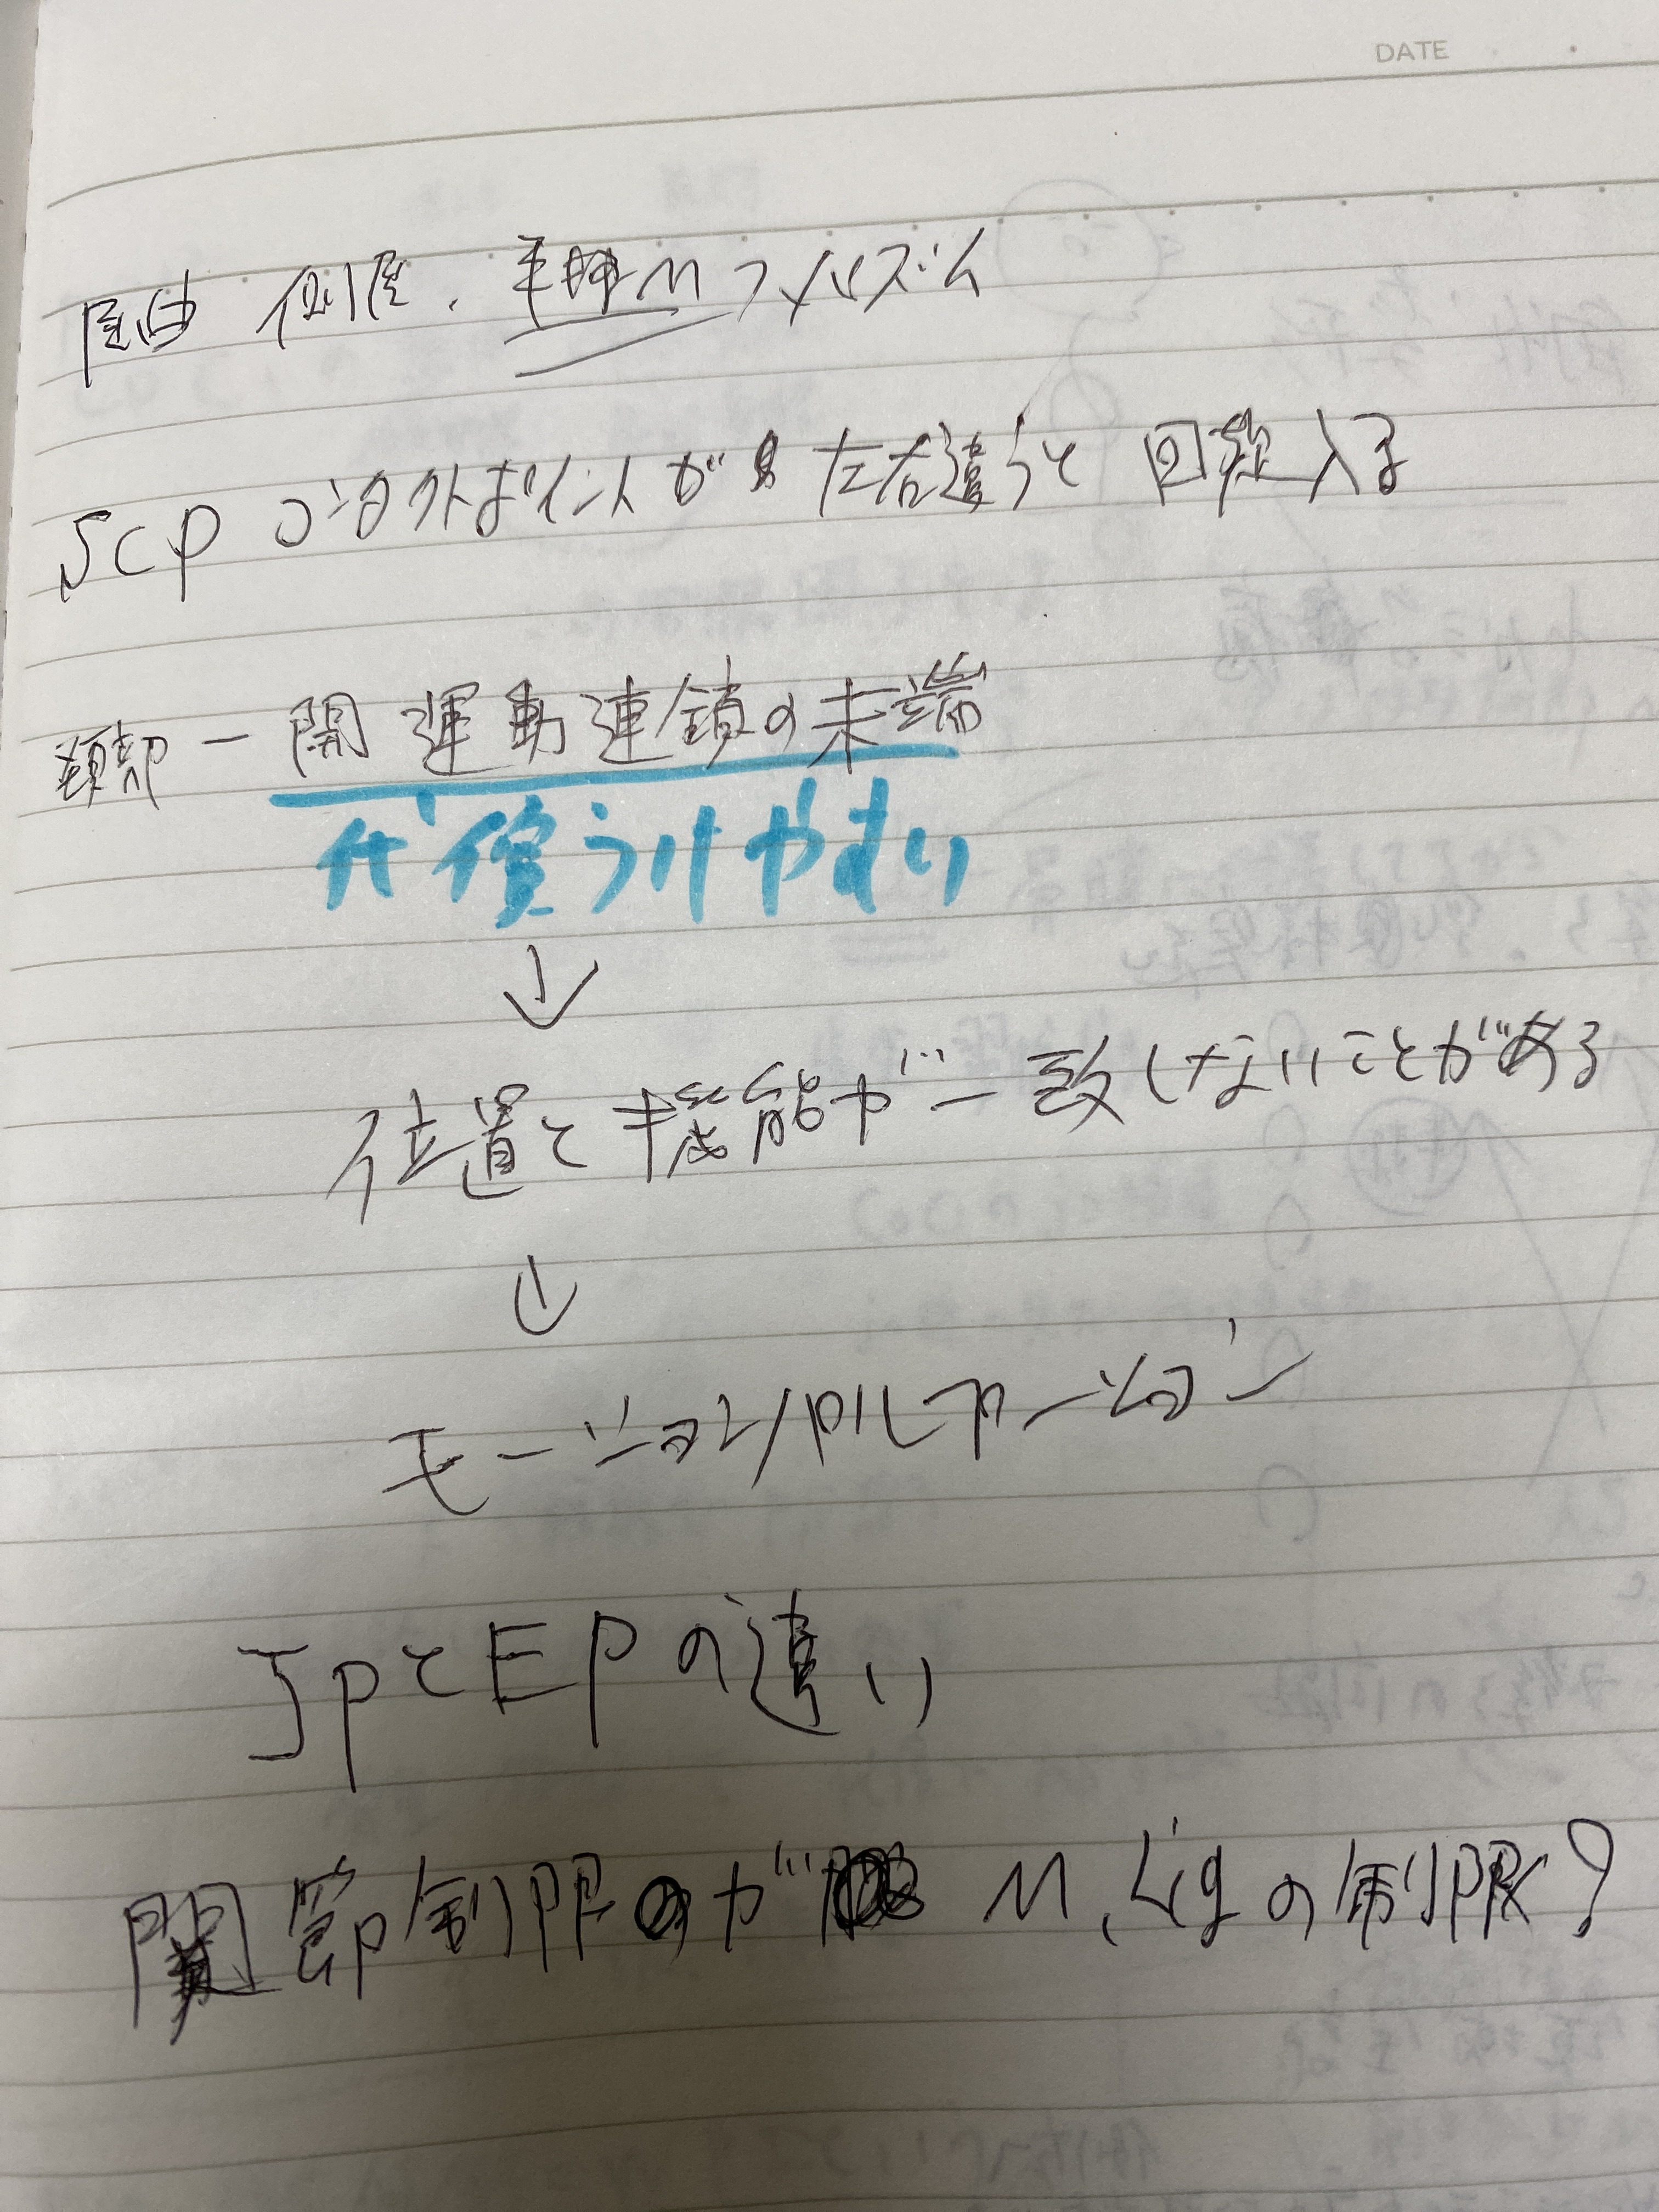 DATE
屈曲 側屈. 手関M スパズム
SCP コンタクトポイントが 左右違うと 回旋入る
頚部 ー 開 運動連鎖の末端
代償うけやすい
↓
位置と機能が一致しないことがある
↓
モーションパルペーション
JPとEPの違い
関節制限が M, Ligの制限?